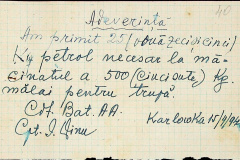 40
Adeverință
Am primit 25 (douăzecișicinci)
Kg petrol necesar la mă-
cinatul a 500 (cincisute) Kg.
mălai pentru trupă.
Cdt. Bat. AA.
Karlowka 15/9/942
Cpt. I. Dinu